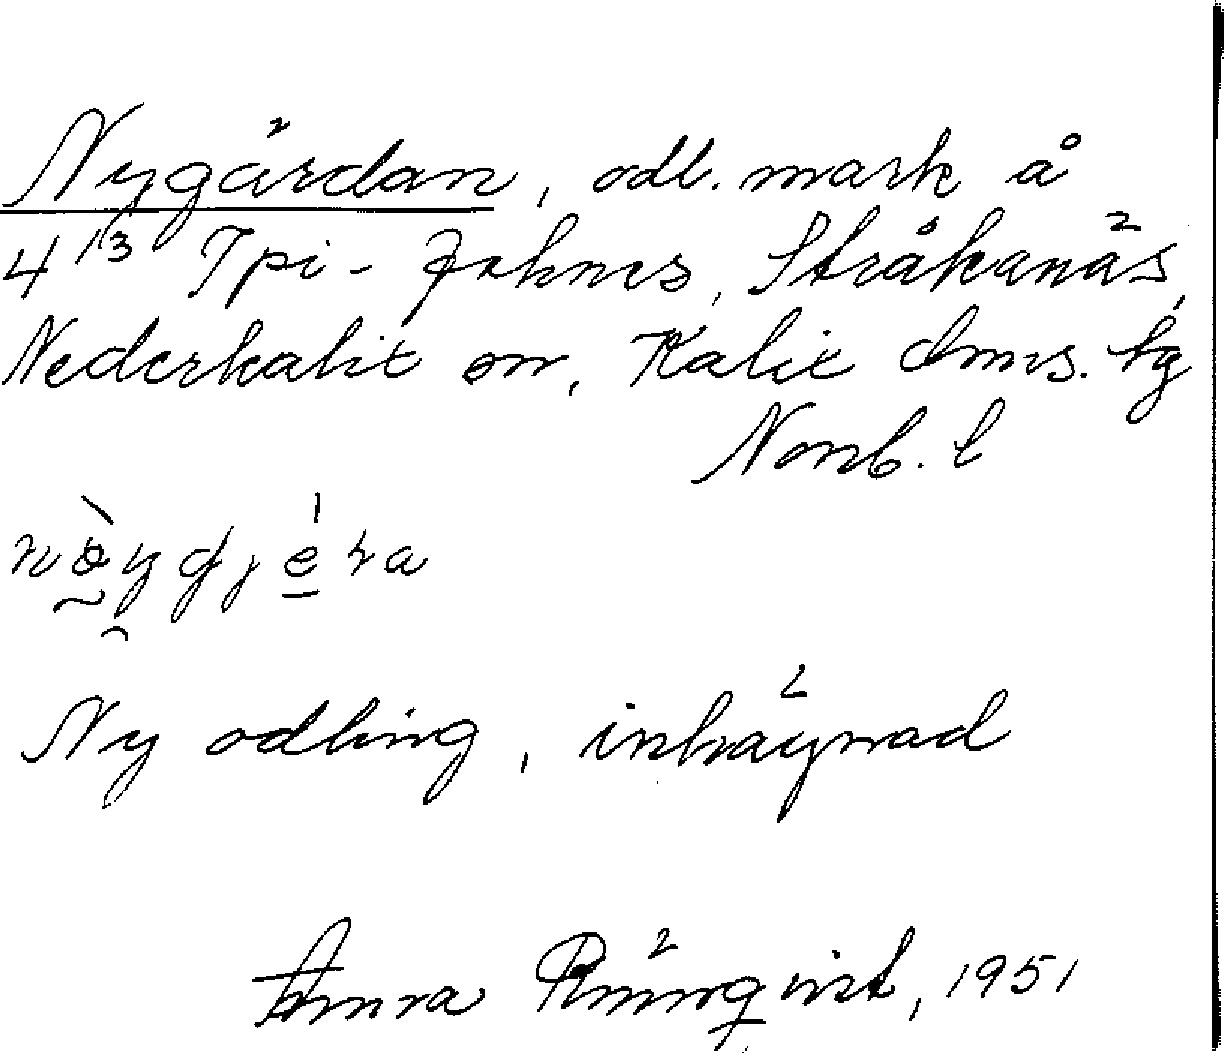 Nygärdan, odl. mark å
4¹³ Ipi-Johnes, Stråkanäs,
Nederkalix sn, Kalix dmrs. tg
Norrb. l
Ny odling, inhägnad
Anna Rönnqvist, 1951